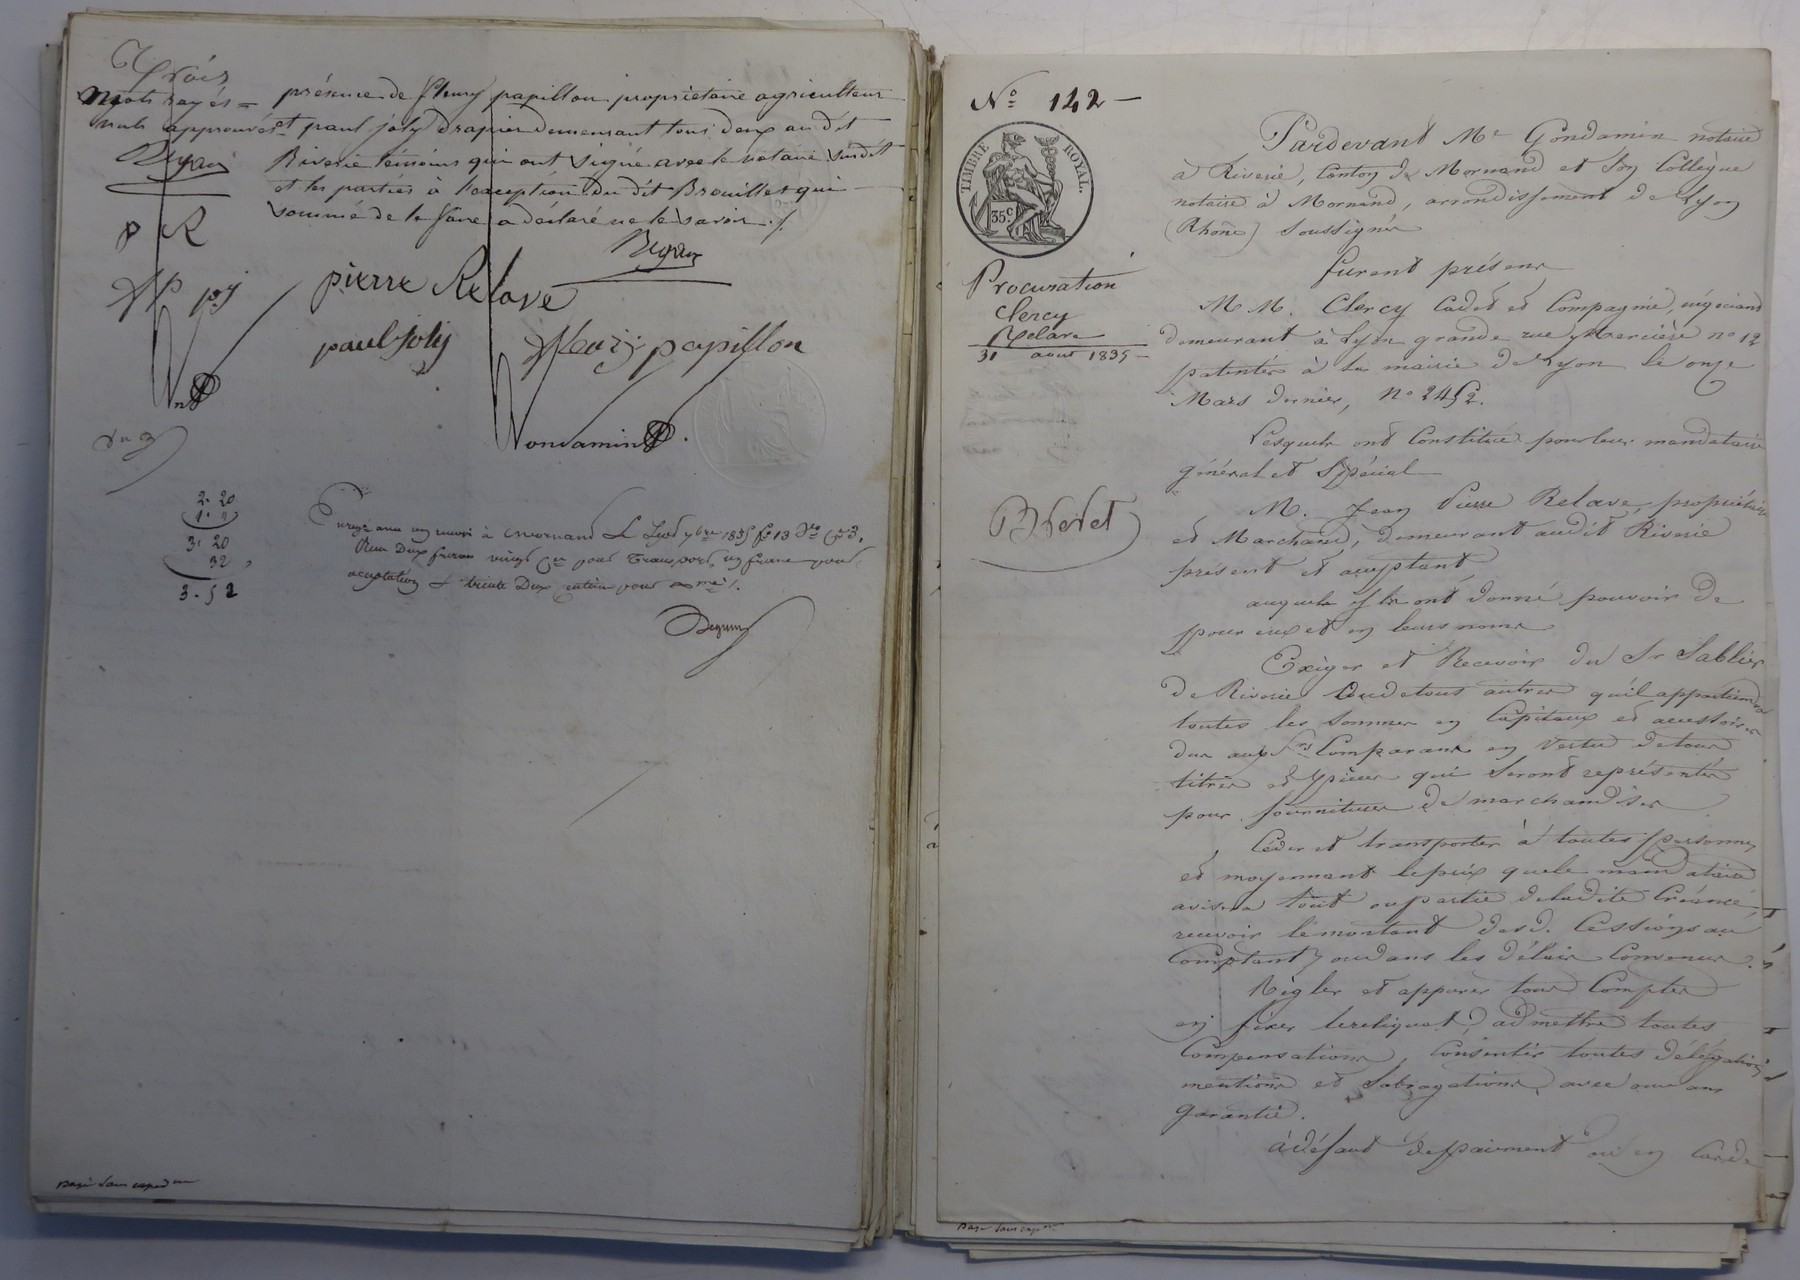 Trois
mots rayés =
nuls approuvés
présence de fleury papillon propriétaire agriculteur
et paul joly drapier demeurant tous deux au dit
Riverie témoins qui ont signé avec le notaire susdit
et les parties à l'exception du dit Brouillet qui
sommé de le faire a déclaré ne le savoir ./.
p R
pierre Relave
paul joly
fleury papillon
2. 20
1. "
3. 20
32
3. 52
Enregistré à Mornant Le 7bre 1835 fo 13 Vo Ce 3.
Reçu Deux francs vingt Cmes pour Transport, un franc pour
acceptation & trente Deux centimes pour
No 142 —
TIMBRE ROYAL.
35c
Procuration
Clercy
Relave
31 aout 1835 —
Pardevant Me Gondamin notaire
à Riverie, Canton de Mornand et son Collègue
notaire à Mornand, arrondissement de Lyon
(Rhône) Soussignés
furent présens
MM. Clercy Cadet et Compagnie, négociants
demeurant à Lyon grande rue Mercière no 12
patentés à la mairie de Lyon le onze
Mars dernier, No 2452.
Lesquels ont Constitué pour leur mandataire
général et Spécial
M. Jean Pierre Relave, propriétaire
et Marchand, demeurant audit Riverie
présent et acceptant
auquel ils ont donné pouvoir de
pour eux et en leurs noms
Exiger et Recevoir du Sr Sablier
de Riverie ou de tous autres qu'il appartiendra
toutes les sommes en Capitaux et accessoires
dus aux Srs Comparants en Vertu de tous
titres et pièces qui seront représentés
pour fournitures de marchandises
Céder et transporter à toutes personnes
et moyennant le prix que le mandataire
avisera tout ou partie de ladite Créance,
recevoir le montant desd. Cessions au
Comptant, ou dans les délais Convenus.
Règler et appurer tous Comptes
en fixer le reliquat, admettre toutes
Compensations, Consentir toutes délégations
mentions et Subrogations, avec ou sans
garantie.
à défaut de paiement ou en Cas de